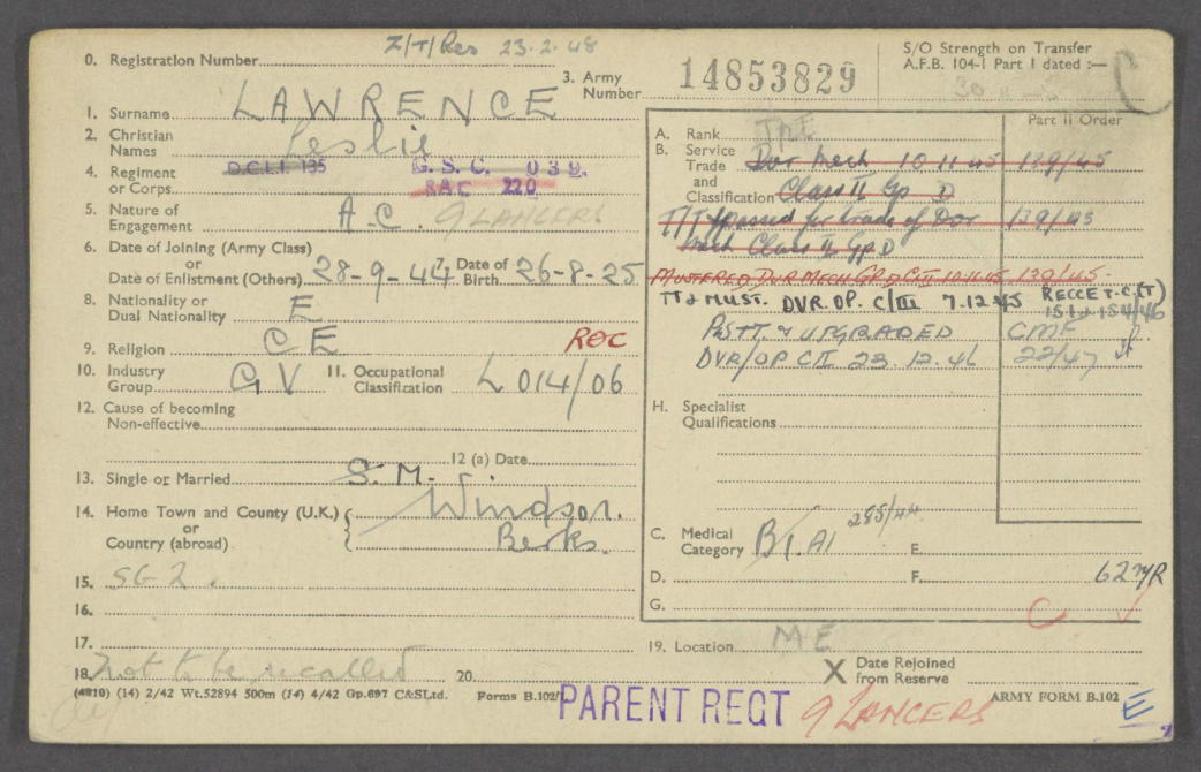 Z/T/Res 23.2.48
0. Registration Number
3. Army Number 14853829
S/O Strength on Transfer
A.F.B. 104-1 Part 1 dated :—
C
1. Surname LAWRENCE
2. Christian Names Leslie
4. Regiment or Corps. D.C.L.I. 135 G.S.C. 039.
RAC 220
5. Nature of Engagement A.C. 9 LANCERS
6. Date of Joining (Army Class)
or
Date of Enlistment (Others) 28-9-44 7. Date of Birth 26-8-25
8. Nationality or Dual Nationality E
9. Religion C E ROC
10. Industry Group GV 11. Occupational Classification L 014/06
12. Cause of becoming Non-effective
12 (a) Date
13. Single or Married S. M.
14. Home Town and County (U.K.) Windsor.
or
Country (abroad) Berks.
15. SG 2.
16.
17.
18. not to be recalled 20.
Part II Order
A. Rank TPE
B. Service Trade and Classification Dvr Mech 10.11.45 139/45
Class II Gp D
T/T & passed for trade of Dvr 139/45
Mech Class II Gp D
MUSTERED DVR MECH GP D C II 10.11.45 139/45.
TT & MUST. DVR. OP. C/III 7.12.45 RECCE T.C. (T)
154/46
P&TT & UPGRADED CMF
DVR/OP CII 23.12.46 22/47
H. Specialist Qualifications
C. Medical Category B1. A1 285/44 E.
D. F. 62 MR
G. C ✓
19. Location M E
X Date Rejoined from Reserve
(4810) (14) 2/42 Wt.52894 500m (14) 4/42 Gp.697 C&SLtd. Forms B.102/
PARENT REGT 9 LANCERS
ARMY FORM B.102 E